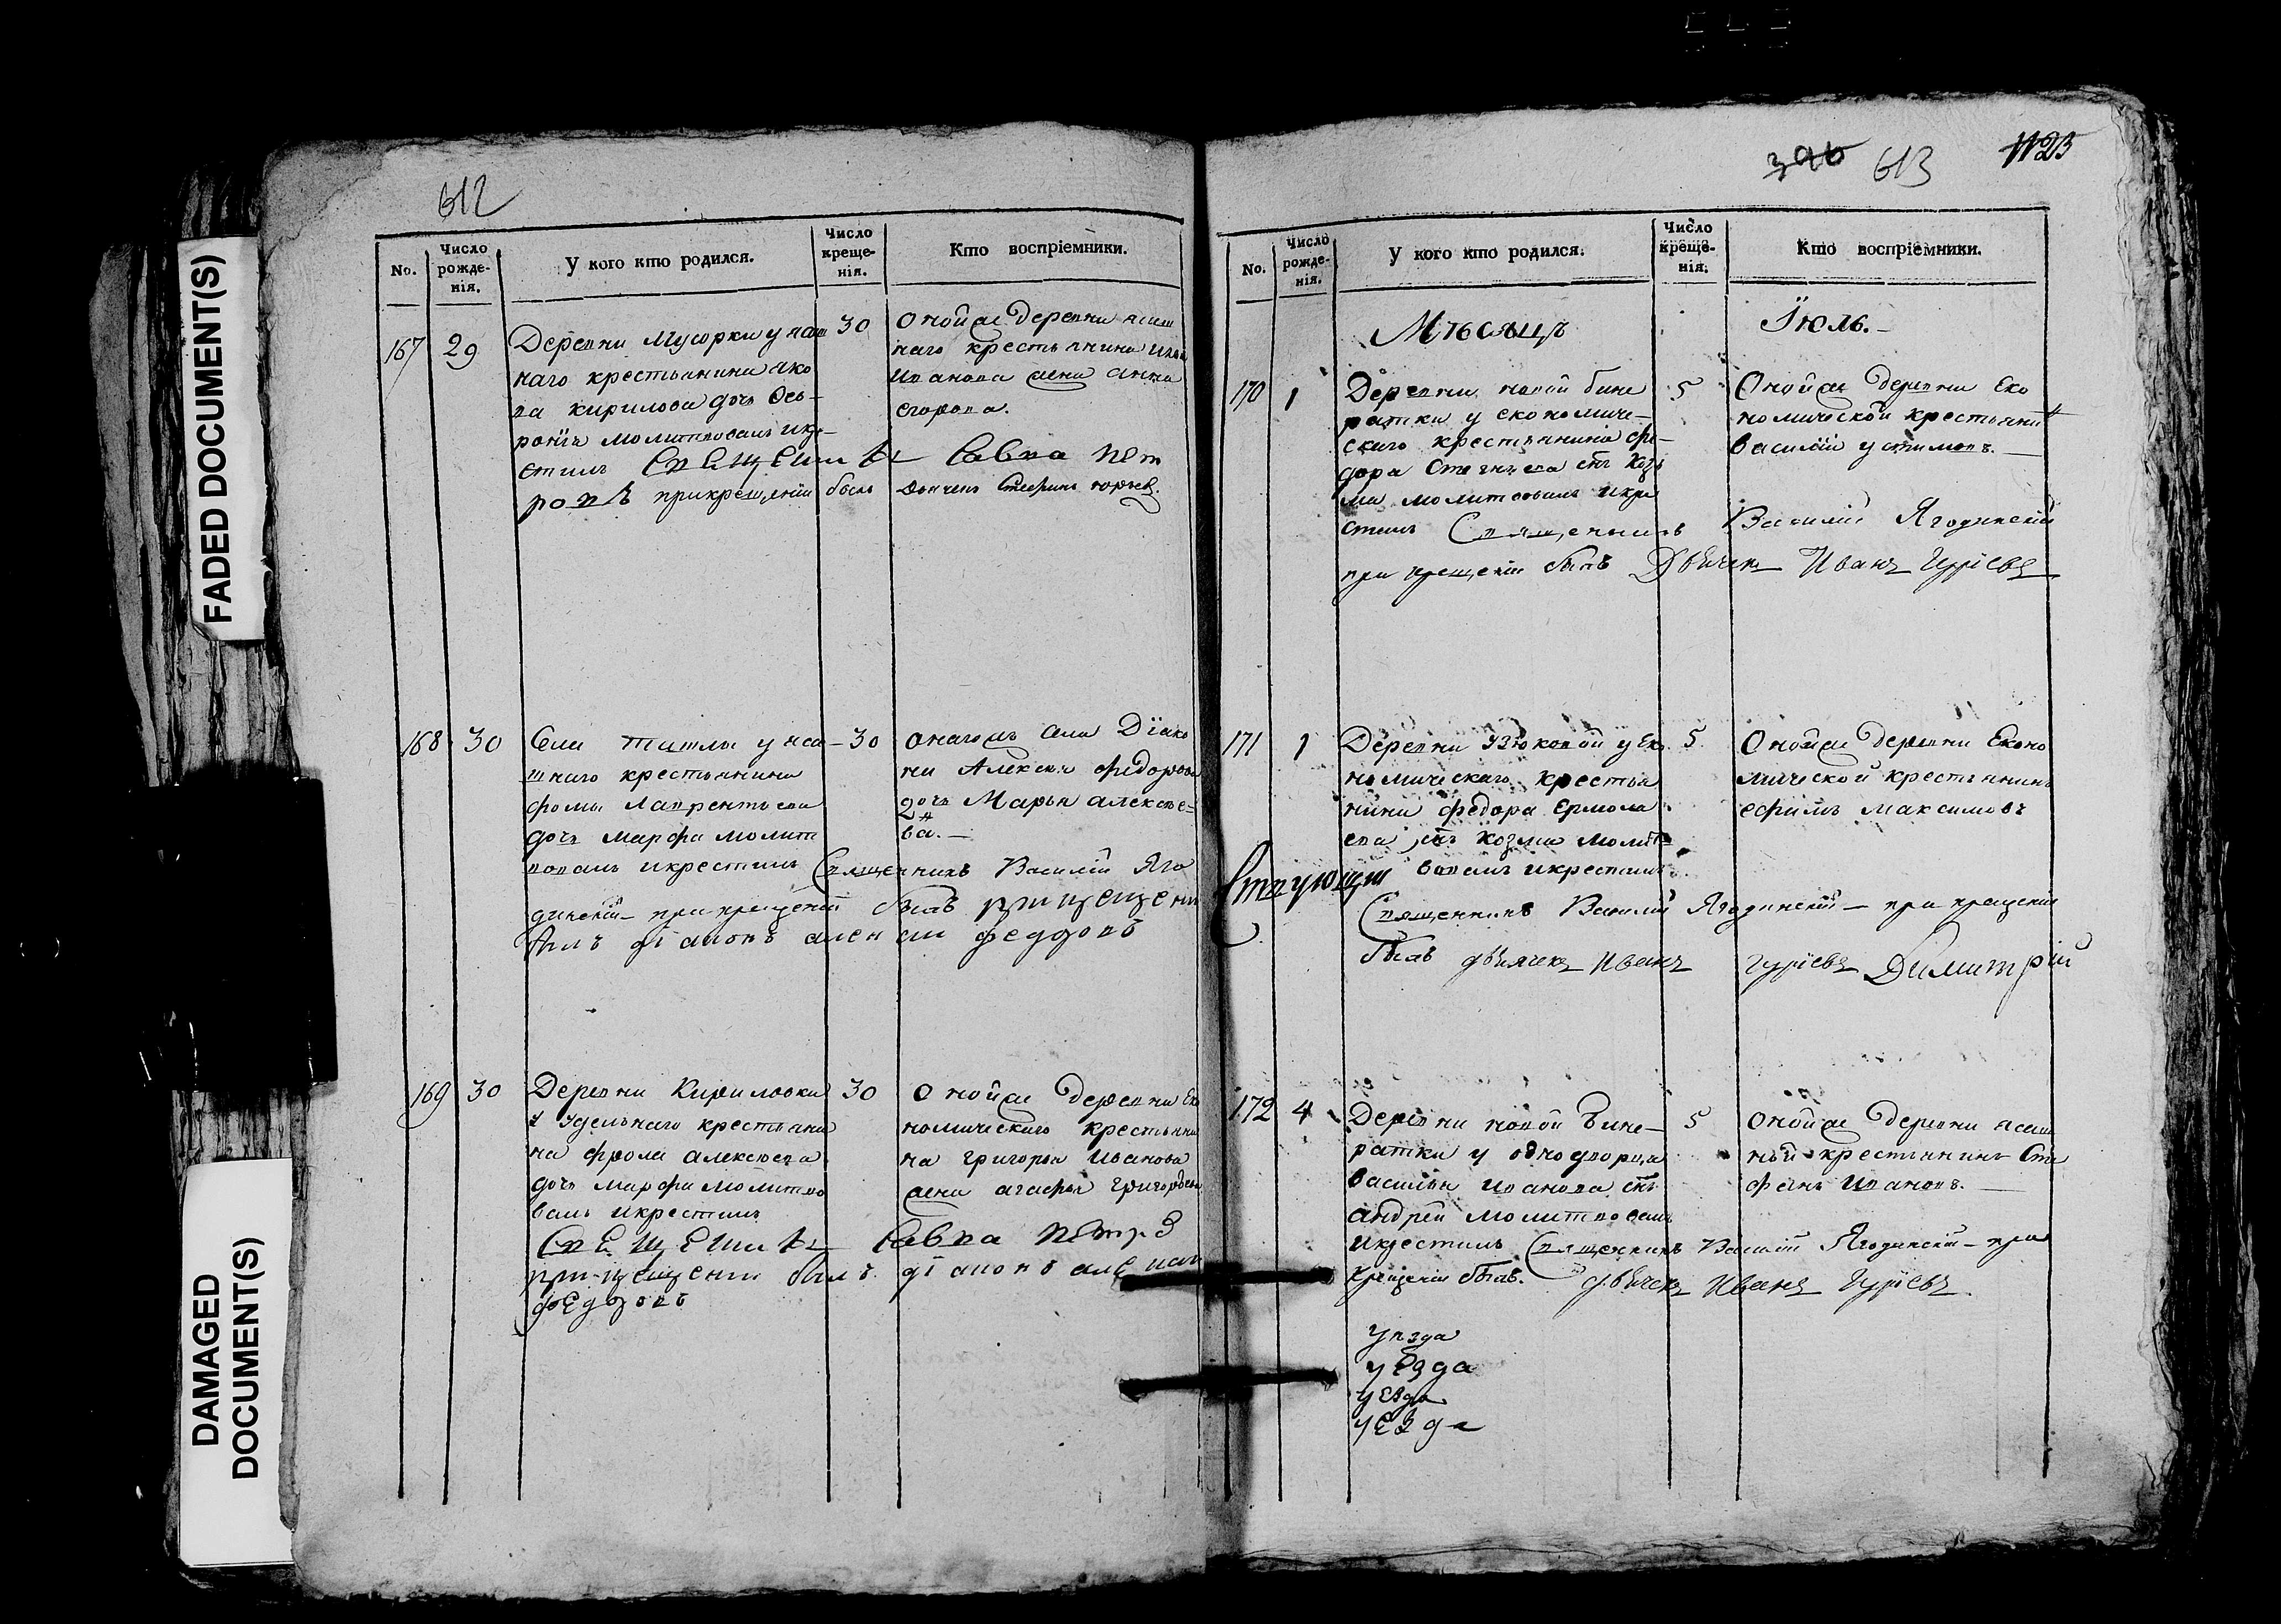 FADED DOCUMENT(S)
DAMAGED
DOCUMENT(S)
612
No.
Число рожде- нія.
У кого кто родился.
Число креще- нія.
Кто воспріемники.
167 29
Деревни Мусорки у паш
наго крестьянина яко
ва кирилова дочь Фев-
ронїя молитвовалъ икре-
стилъ Священникъ Савва Пет
ровъ прикрещенїи былъ Дьячекъ Стефанъ юрьев.
30
Онойже деревни пашен
наго крестьянина
Иванова жена анна
егорова.
168 30
Села ташлы у паш
наго крестьянина
фомы лаврентьева
дочь марфа молит
вовалъ икрестилъ Священникъ Василїй Яго
динскїй – прикрещенїи былъ при крещени
былъ дїаконъ алексей федоровъ
30
Оногожъ села Дїако
на Алексея федорова
дочь Марья алексѣе-
ва.–
169 30
Деревни Кириловки
у Удельнаго крестьяни
на фрола алексѣева
дочь марфа молитво
валъ икрестилъ
Священникъ Савва Петров
при крещении былъ дїаконъ алексей
федоровъ
30
Онойже деревни Эко
номическаго крестьяни
на григорья иванова
жена агафья григорьева
396 613 1123
No.
Число рожде- нія.
У кого кто родился.
Число креще- нія.
Кто воспріемники.
Мѣсяцъ Їюль.–
170 1
Деревни новой бине
ратки у економиче-
скаго крестьянина фе-
дора сын козь
ма молитвовалъ икре
стилъ Священникъ Василїй Ягодинскїй
при крещенїи былъ Дьячекъ Иванъ Гурїевъ
5
Онойже деревни Еко
номической крестьянинъ
василїй устимовъ.
171 1
Деревни Узюковой у Еко
номическаго крестья
нина федора ермола
ева сынъ козма молит
вовалъ икрестилъ
Священникъ Василїй Ягодинскїй – при крещенїи
былъ дьячекъ Иванъ гурїевъ Димитрїй
5.
Онойже деревни Еконо
мической крестьянинъ
ефимъ максимовъ
172 4
Деревни новой бине-
ратки у однодворца
василья иванова сынъ
андрей молитвовалъ
икрестилъ Священникъ Василїй Ягодинскїй – при
крещенїи былъ. дьячекъ Иванъ Гурїевъ.
5
Онойже деревни пашен
ный крестьянинъ Сте
фанъ Ивановъ.
уезда
уезда
уезда